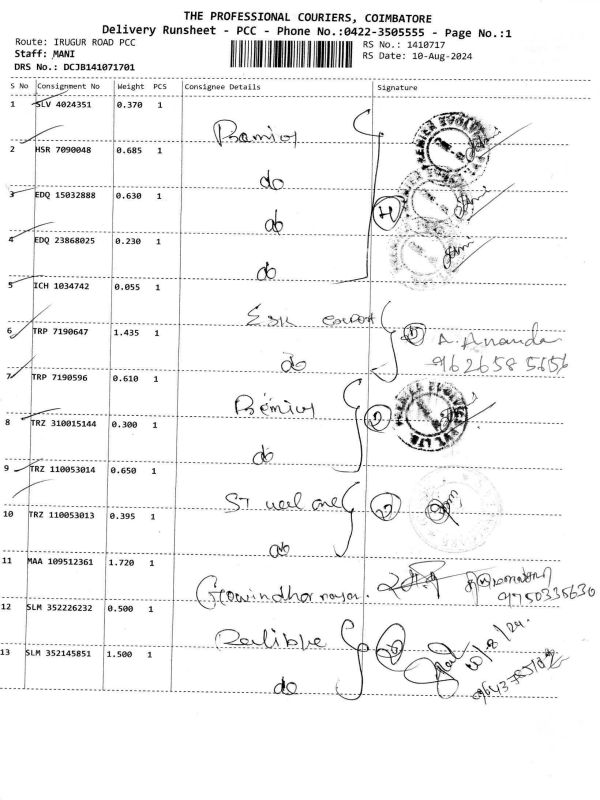 THE PROFESSIONAL COURIERS, COIMBATORE
Delivery Runsheet - PCC - Phone No.:0422-3505555 - Page No.:1
Route: IRUGUR ROAD PCC
Staff: MANI
DRS No.: DCJB141071701
RS No.: 1410717
RS Date: 10-Aug-2024
S No Consignment No Weight PCS Consignee Details Signature
1 SLV 4024351 0.370 1
2 HSR 7090048 0.685 1
do
3 EDQ 15032888 0.630 1
do
4 EDQ 23868025 0.230 1
do
5 ICH 1034742 0.055 1
6 TRP 7190647 1.435 1
A. Ananda
do 9626585656
7 TRP 7190596 0.610 1
8 TRZ 310015144 0.300 1
do
9 TRZ 110053014 0.650 1
10 TRZ 110053013 0.395 1
do
11 MAA 109512361 1.720 1
9750335630
12 SLM 352226232 0.500 1
13 SLM 352145851 1.500 1
10/8/24
do